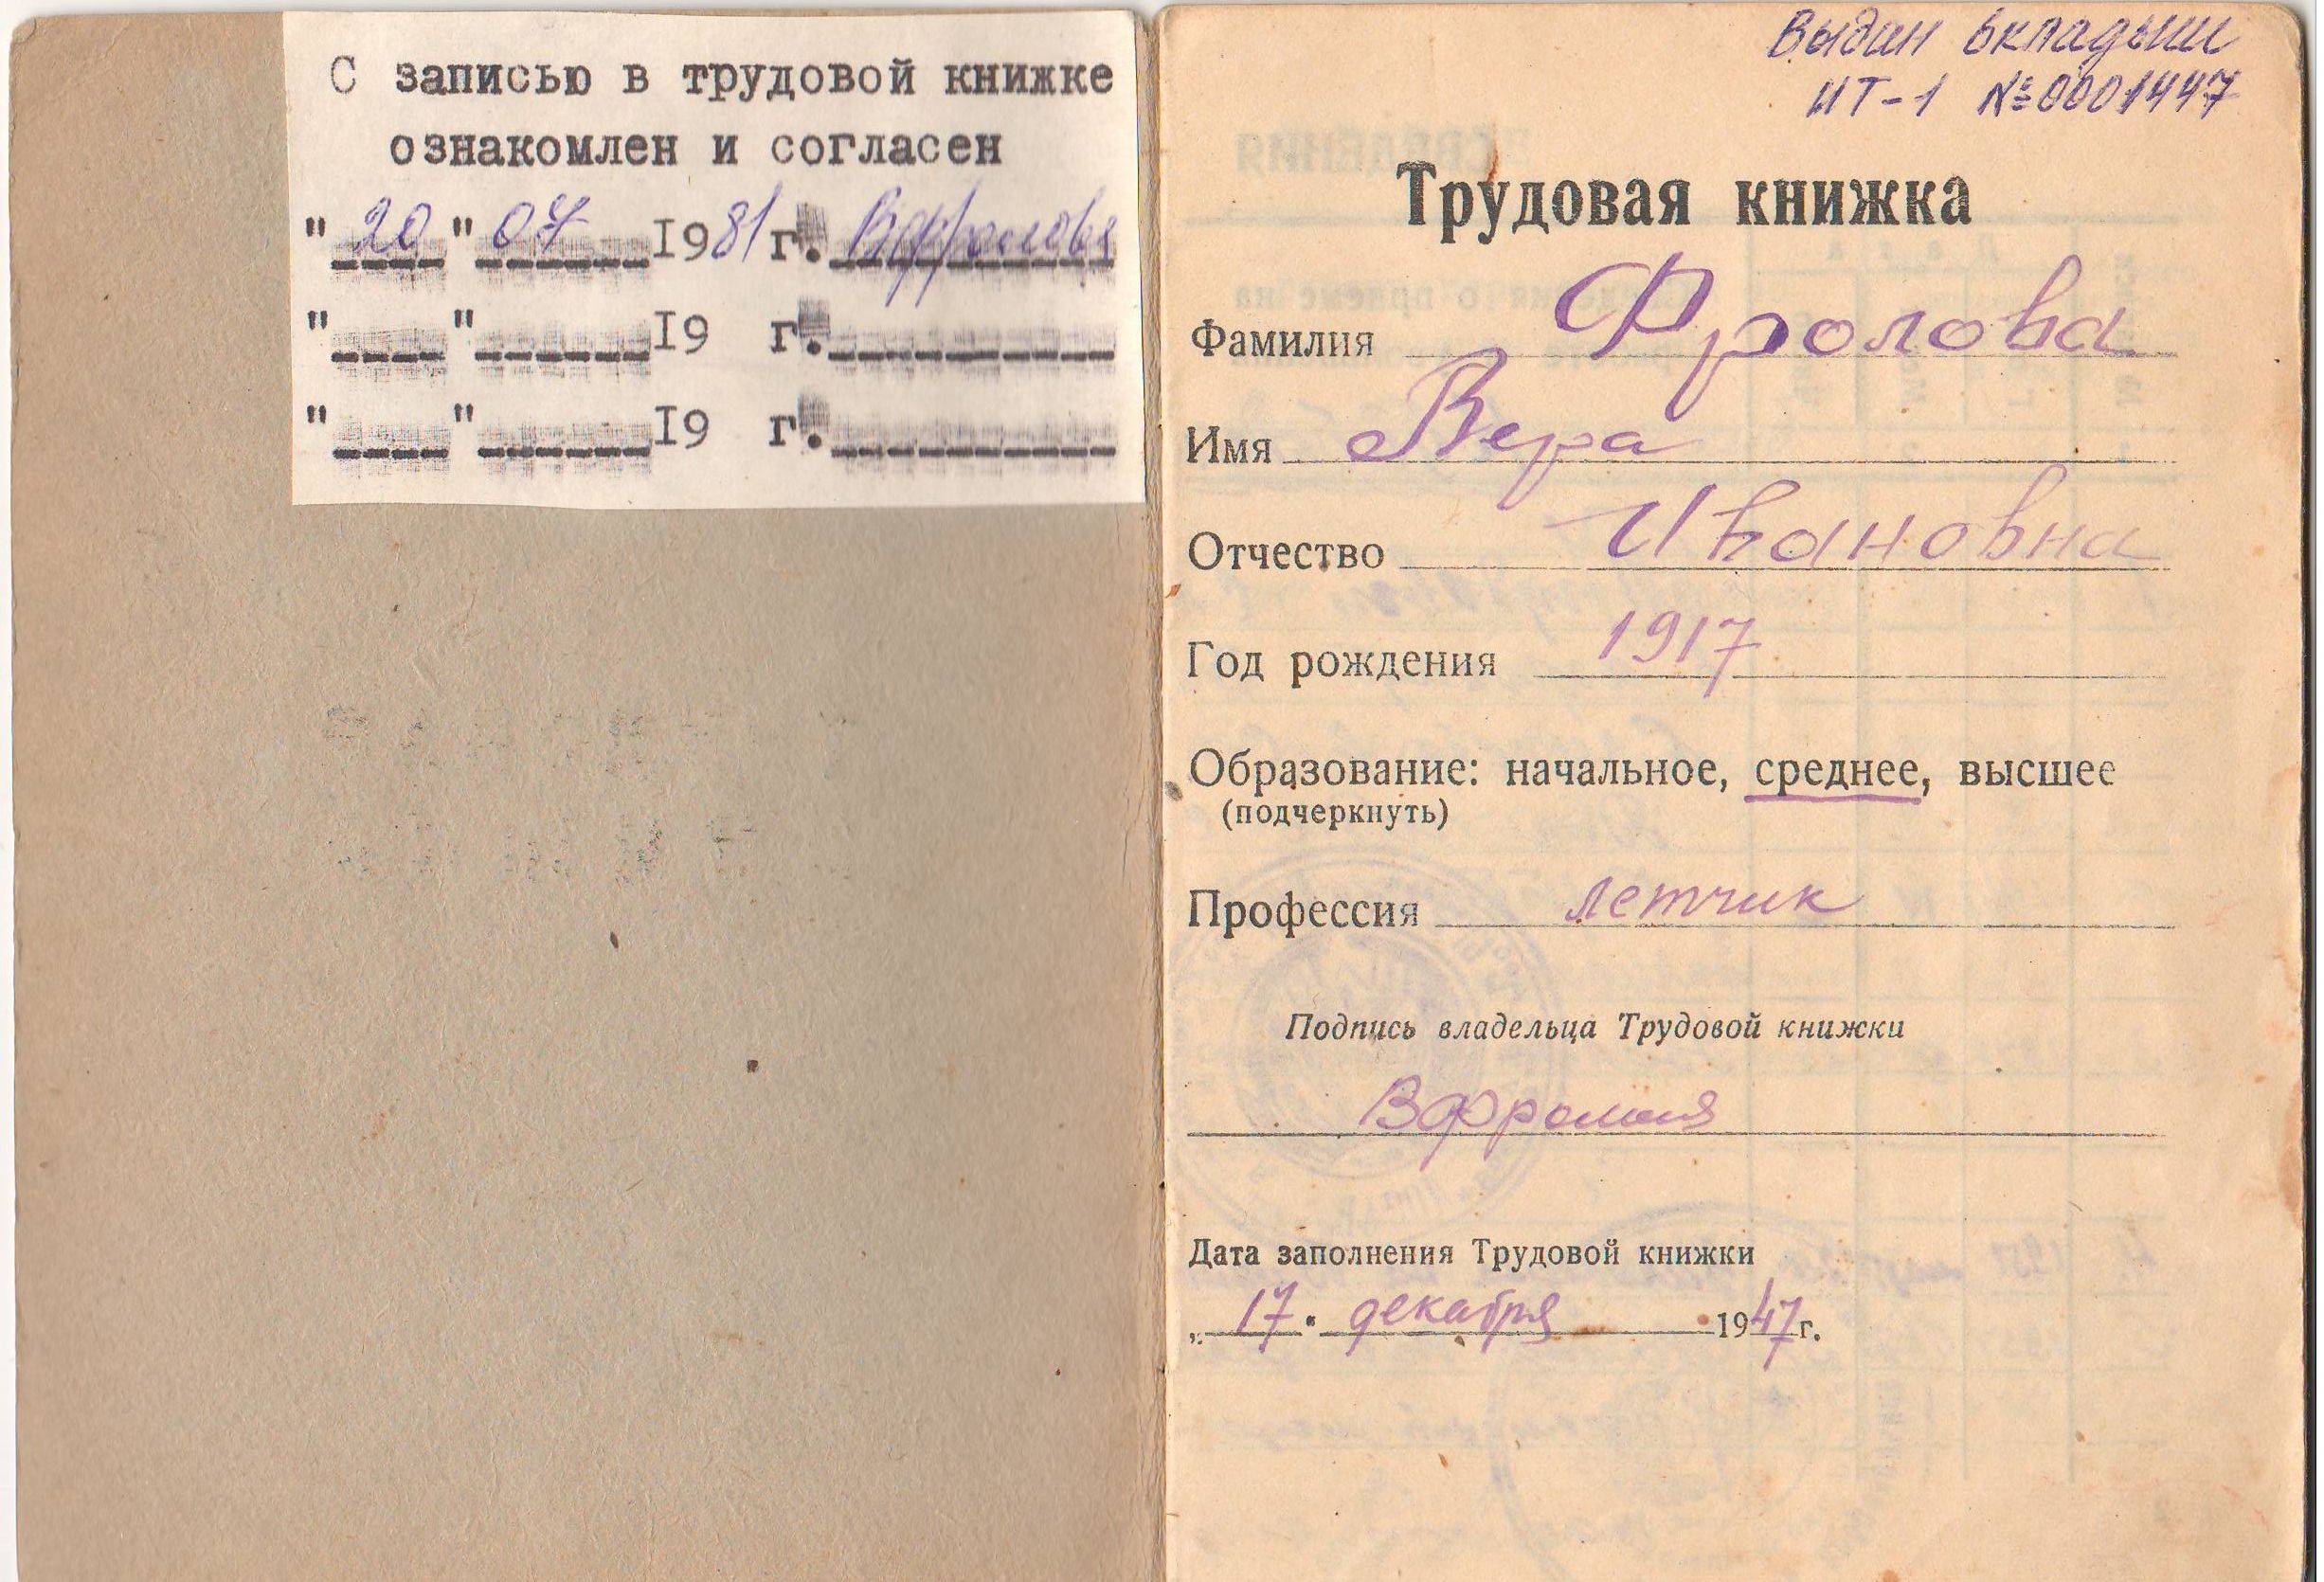 С записью в трудовой книжке
ознакомлен и согласен
"20" 07 1981 г. ВФролова
"____"______19 г.__________
"____"______19 г.__________
Выдан вкладыш
ИТ-1 №0001447
Трудовая книжка
Фамилия Фролова
Имя Вера
Отчество Ивановна
Год рождения 1917
Образование: начальное, среднее, высшее
(подчеркнуть)
Профессия летчик
Подпись владельца Трудовой книжки
ВФролова
Дата заполнения Трудовой книжки
„17" декабря 1947 г.